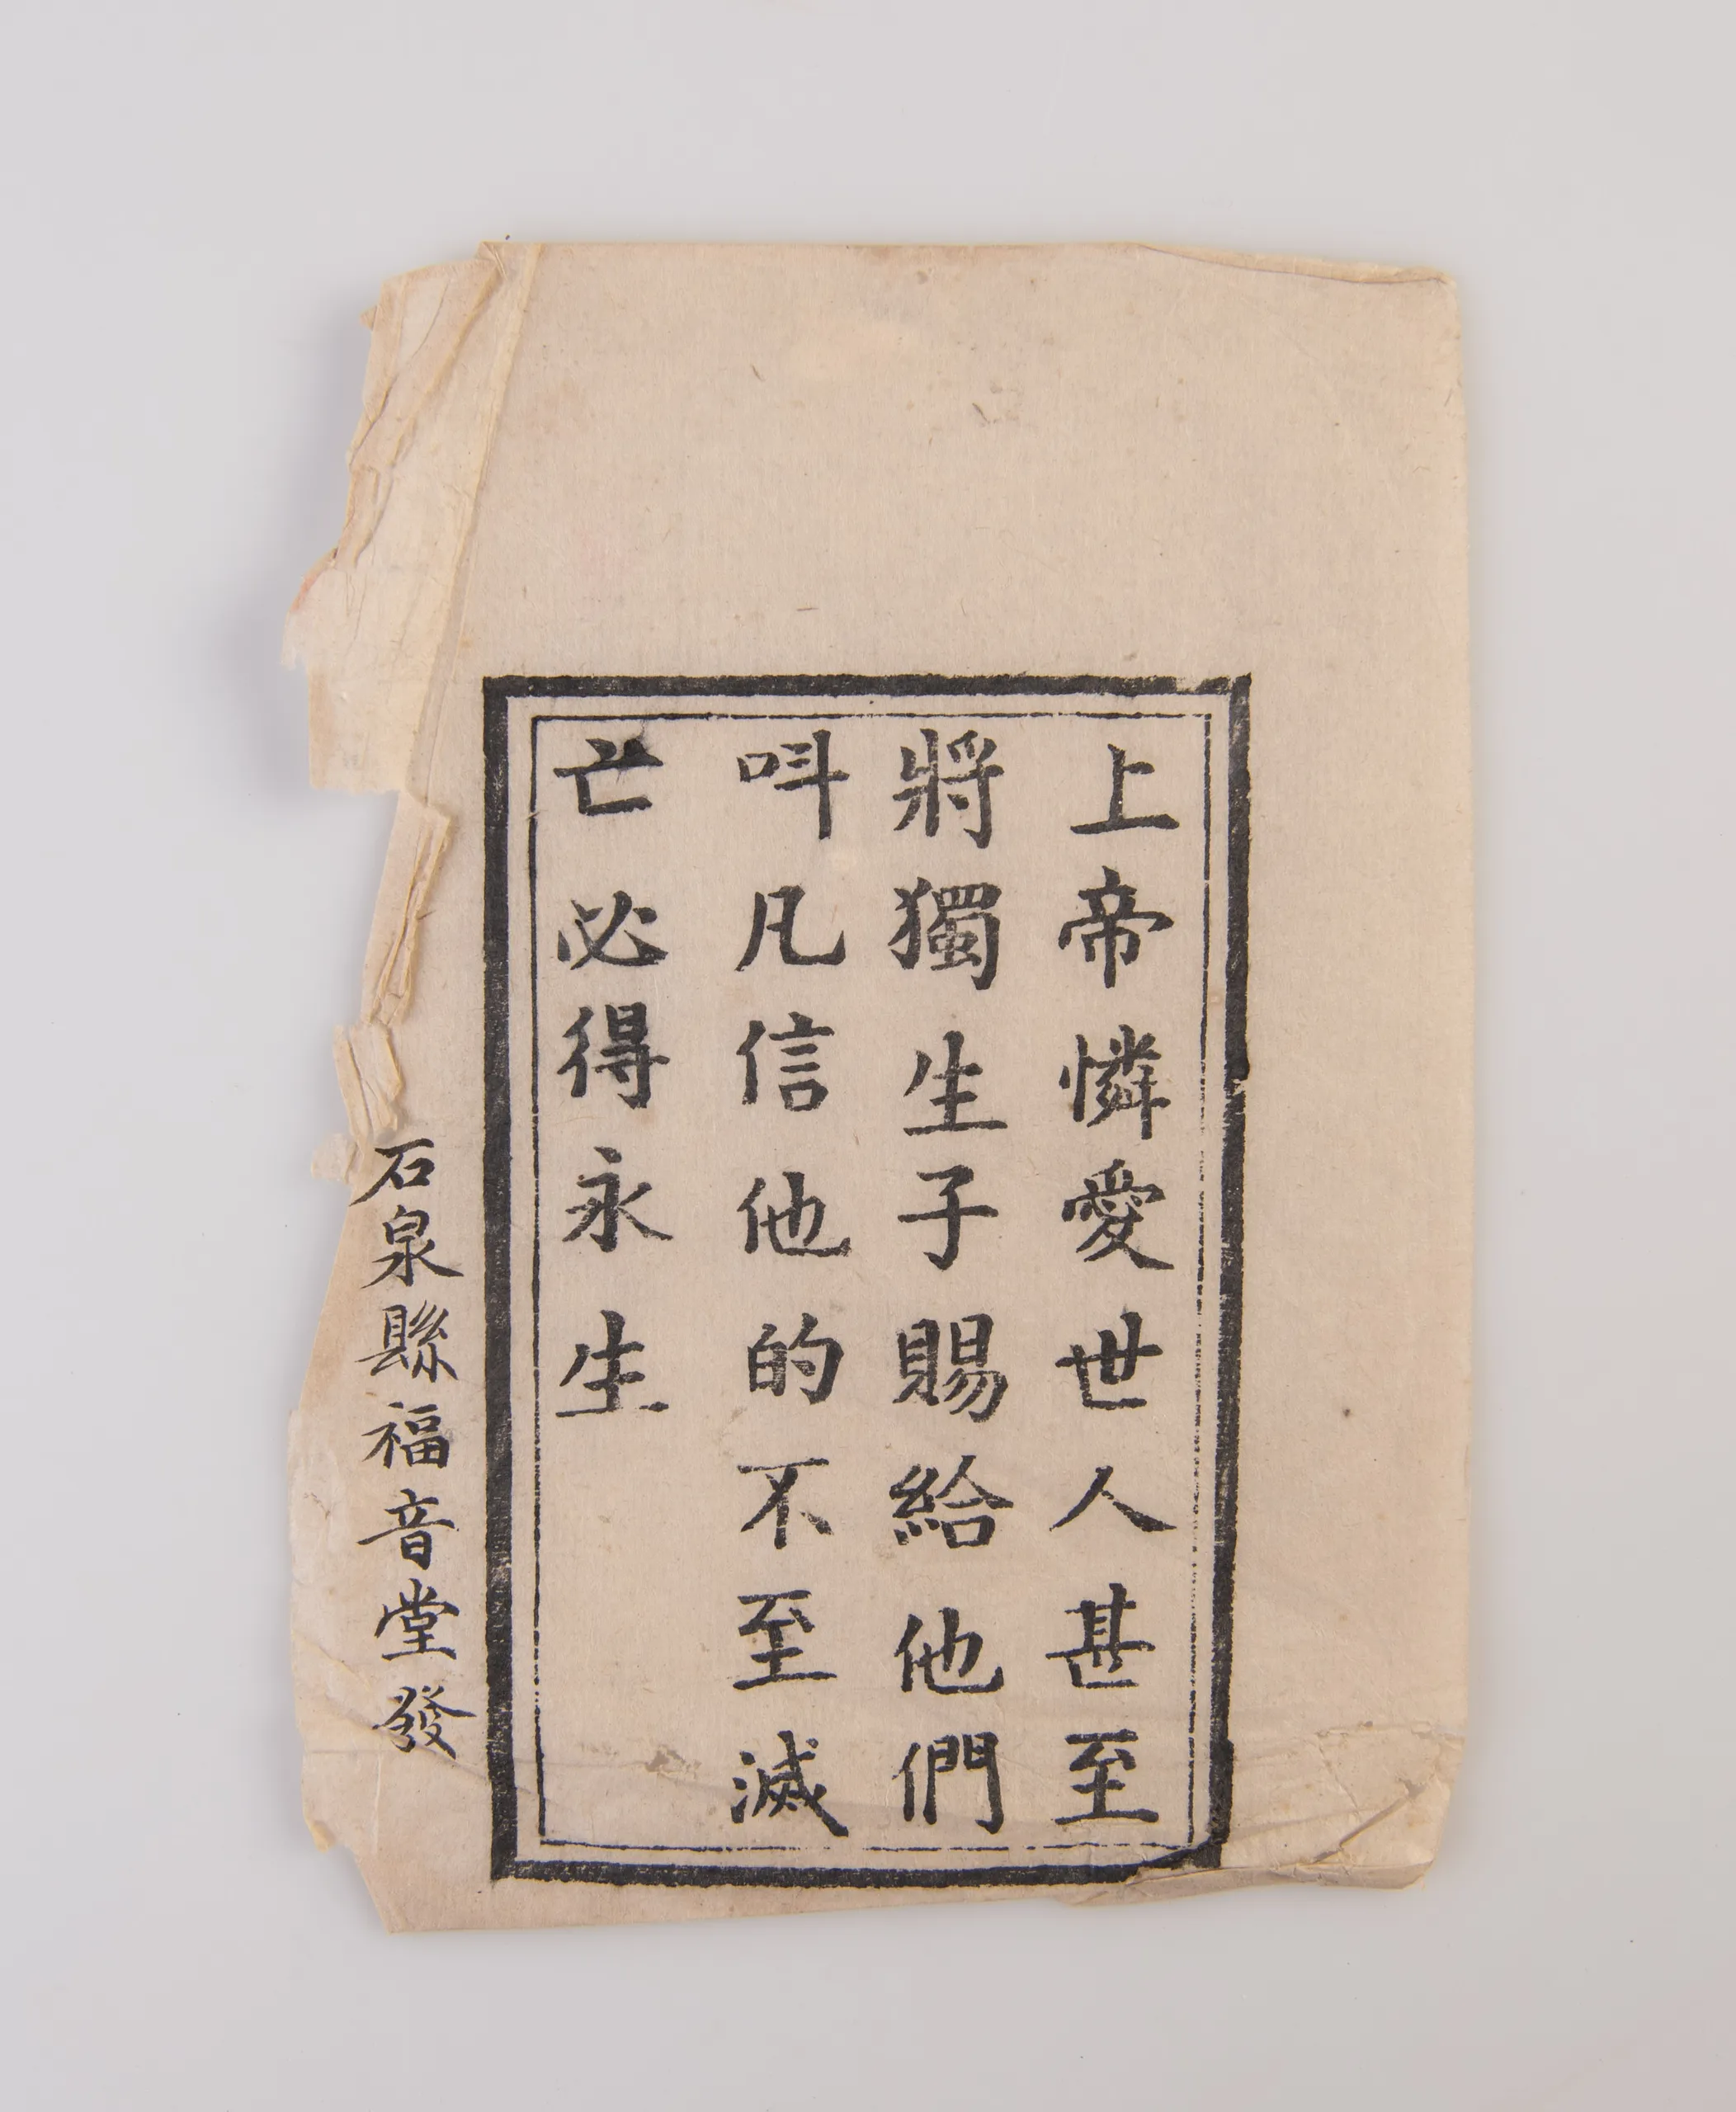 上帝憐愛世人甚至
將獨生子賜給他們
呌凡信他的不至滅
亡必得永生
石泉縣福音堂發